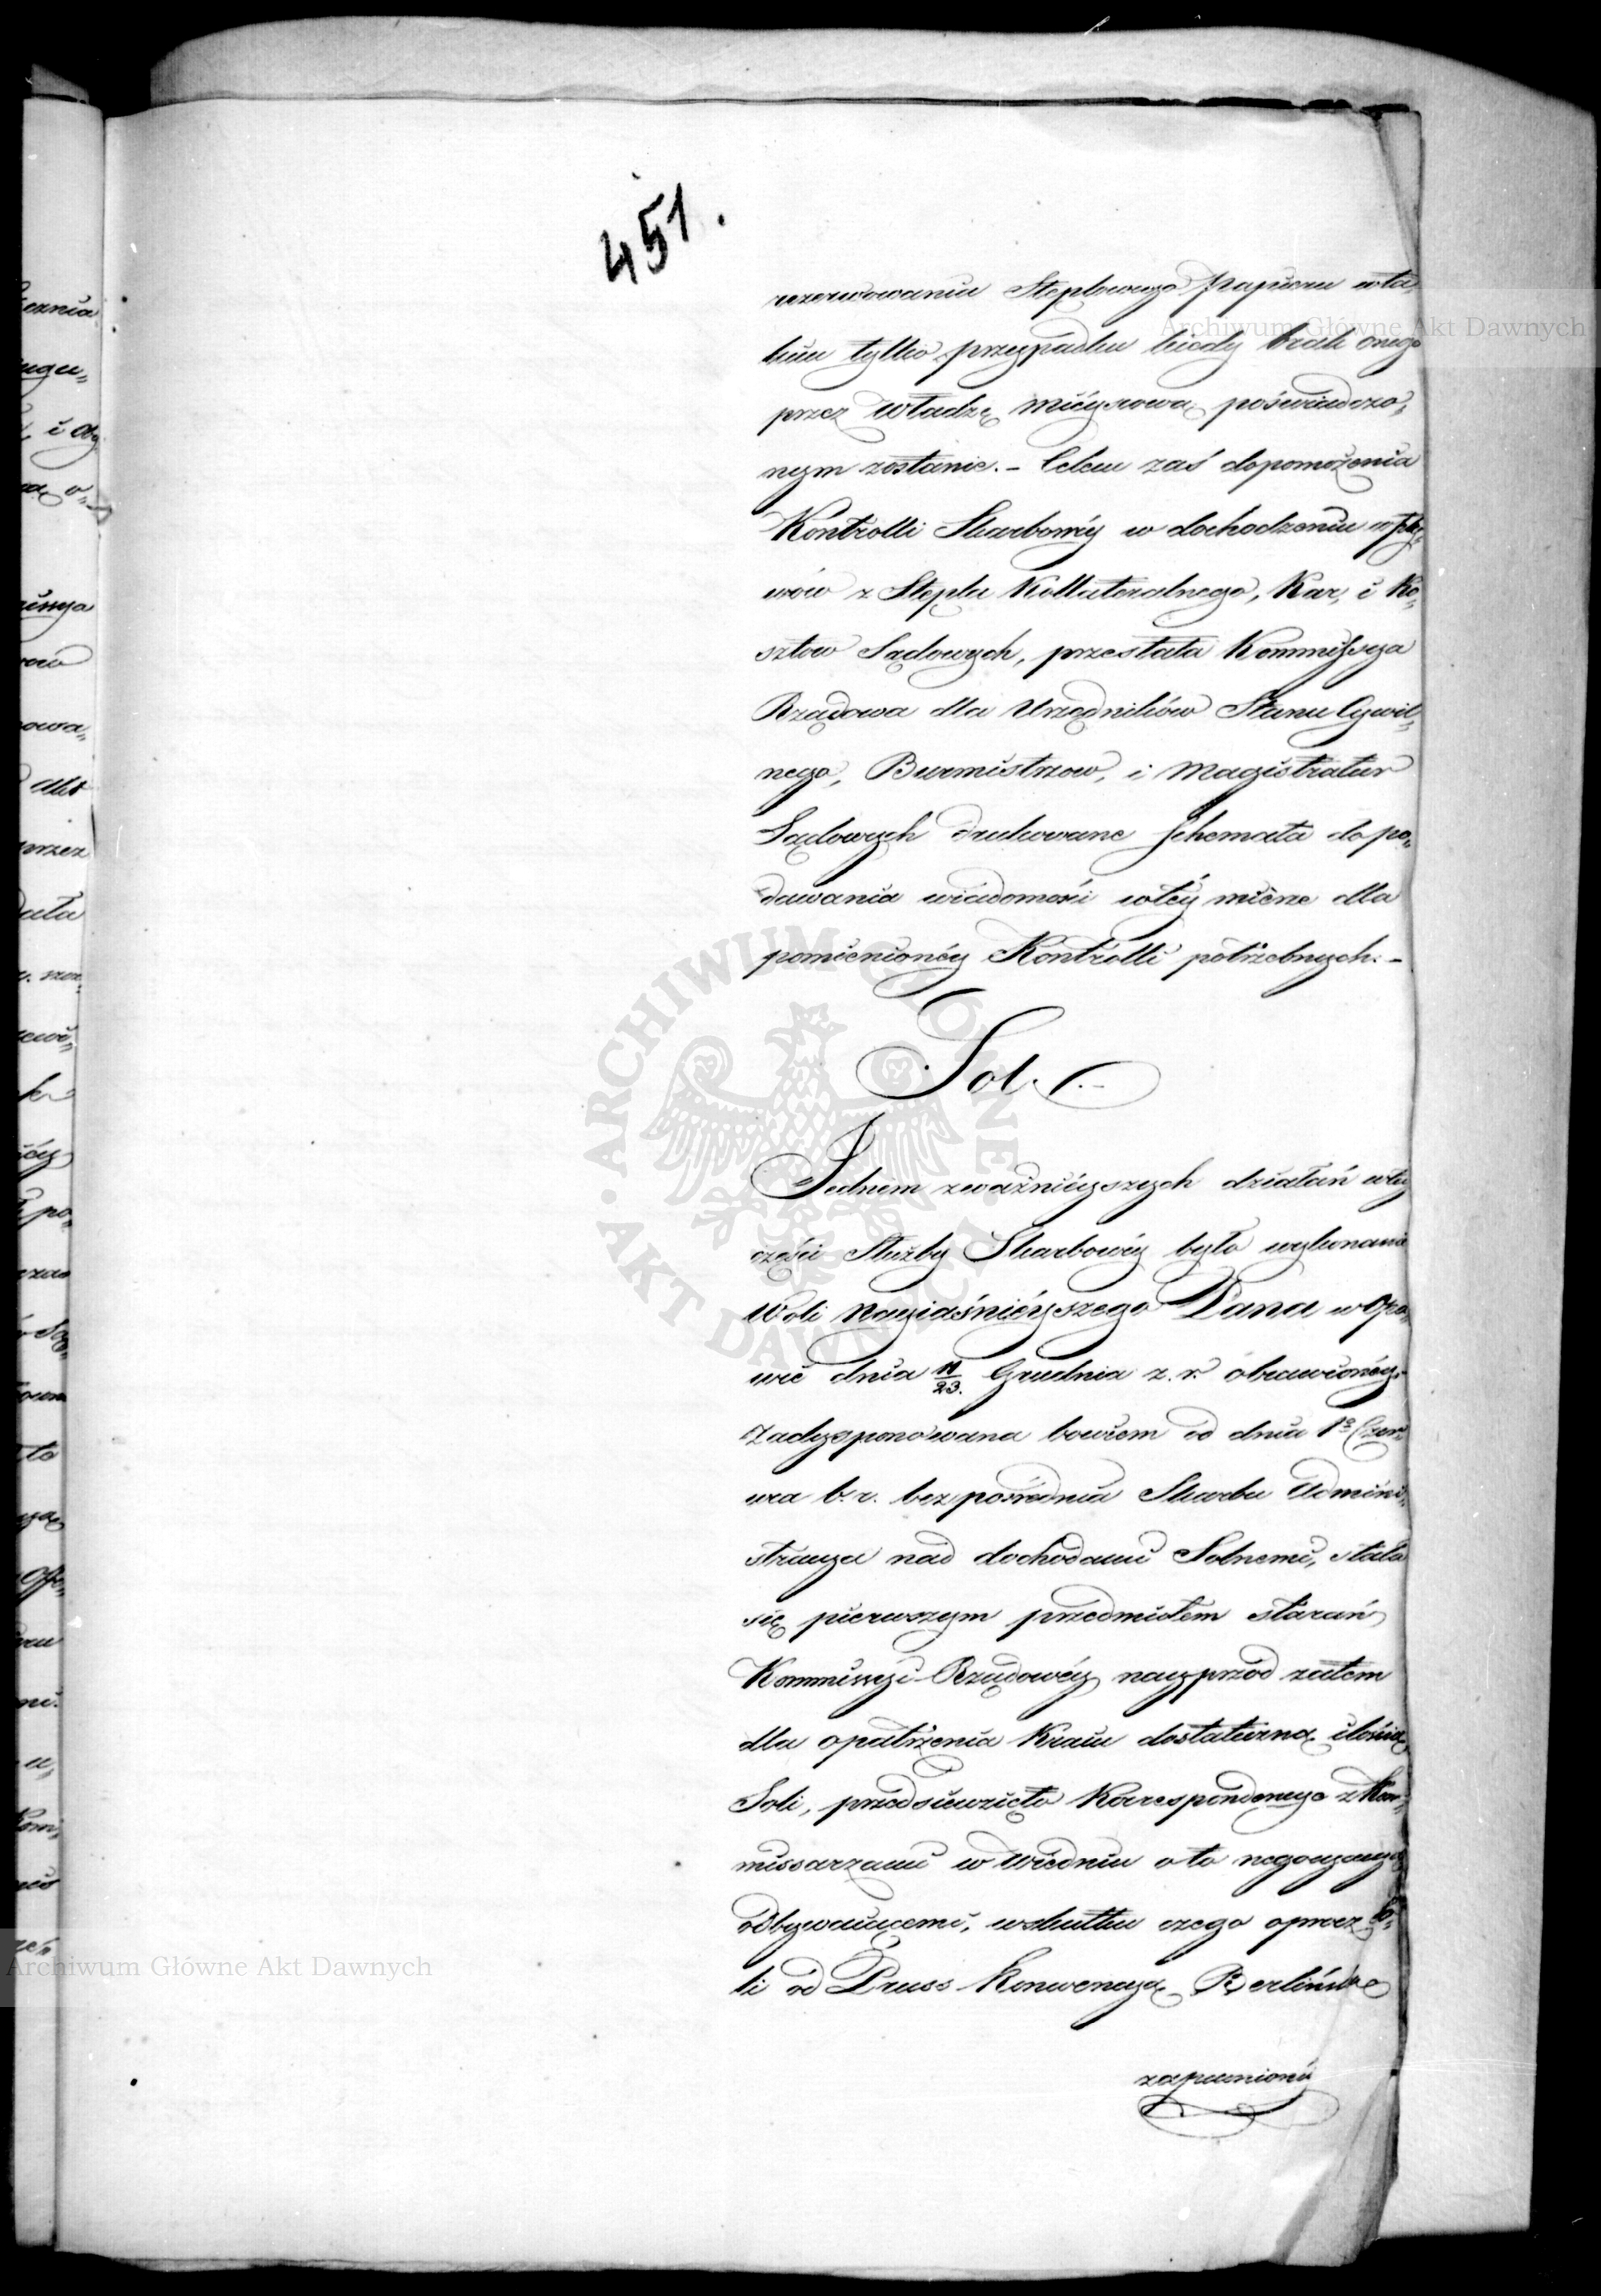 451.
rezerwowaniu Stęplowego papieru w ta,,
kim tylko przypadku kiedy brak onego
przez Władzę Mieyscową poświadczo,,
nym zostanie. – Celem zaś dopomożenia
Kontrolli Skarbowéy w dochodzeniu wpły,,
wów z Stępla Kollateralnego, Kar, i Ko,,
sztow Sądowych, przesłała Kommissya
Rządowa dla Urzędników Stanu Cywil,,
nego, Burmistrzow, i Magistratur
Sądowych drukowane schemata do po,,
dawania wiadomości w téy mierze dla
pomienionéy Kontrolli potrzebnych. –
Sol. –
Jednem z ważnieyszych działań w téy
części Służby Skarbowéy było wykonanie
Woli Nayiaśnieyszego Pana w Opa,,
wie dnia 11/23. Grudnia z. r. obiawionéy.
Zadysponowana bowiem od dnia 1º Czer,,
wca b. r. bezpośrednia Skarbu Admini,,
stracya nad dochodami Solnemi, stała
się pierwszym przedmiotem starań
Kommissyi Rządowéy nayprzód zatem
dla opatrzenia Kraiu dostateczną ilością
Soli, przedsięwzięto Korrespondencye z Kom,,
missarzami w Wiedniu o to negocyacye
odbywaiącemi, w skutku czego oprocz So,,
li od Pruss Konwencyą Berlińską
zapewnionéy
Archiwum Główne Akt Dawnych
Archiwum Główne Akt Dawnych
ARCHIWUM GŁÓWNE AKT DAWNYCH